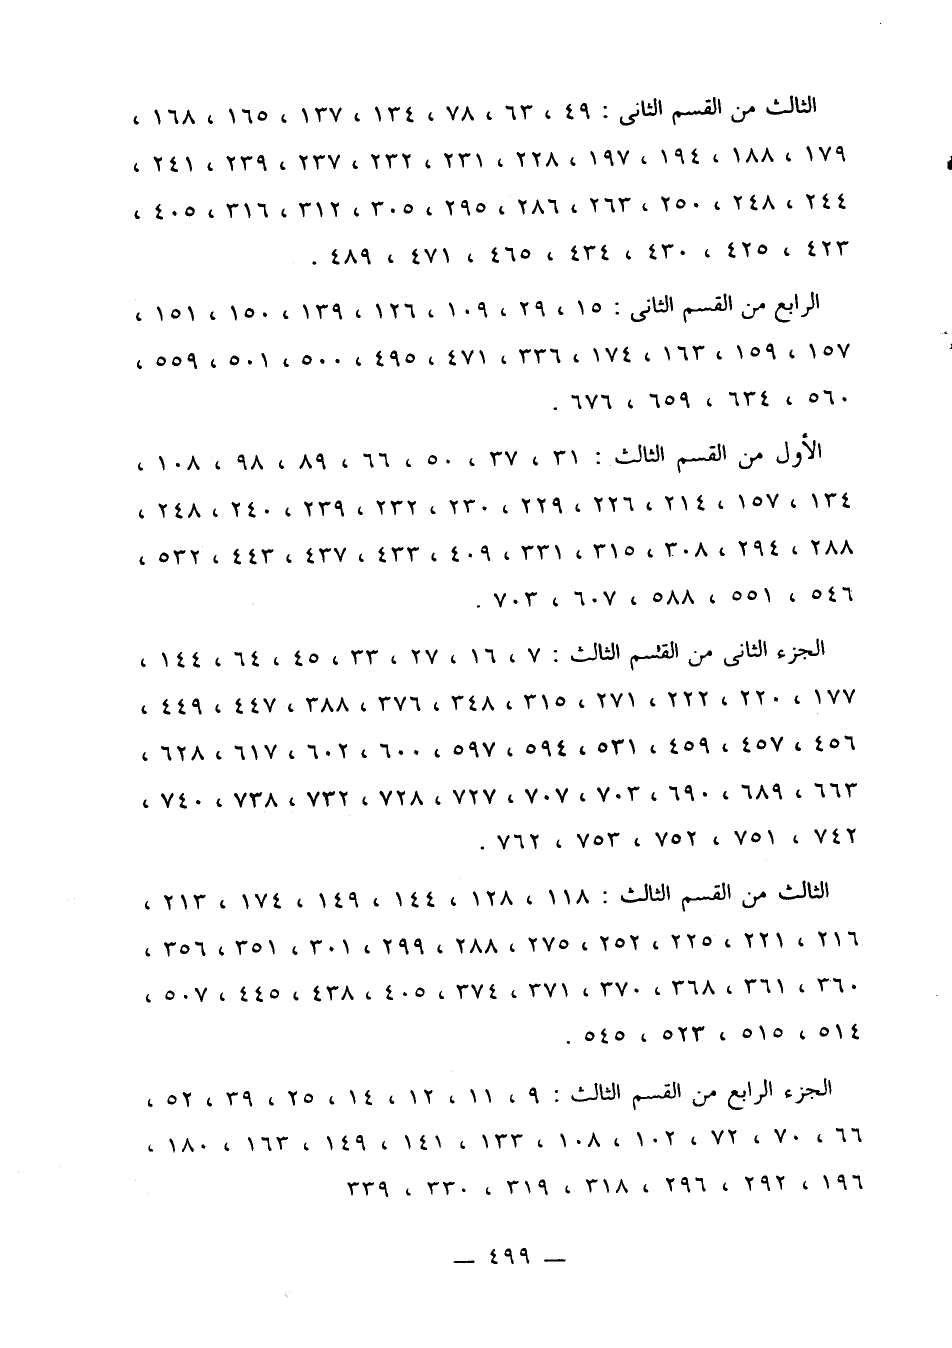 الثالث من القسم الثانى : ٤٩ ، ٦٣ ، ٧٨ ، ١٣٤ ، ١٣٧ ، ١٦٥ ، ١٦٨ ،
١٧٩ ، ١٨٨ ، ١٩٤ ، ١٩٧ ، ٢٢٨ ، ٢٣١ ، ٢٣٢ ، ٢٣٧ ، ٢٣٩ ، ٢٤١ ،
٢٤٤ ، ٢٤٨ ، ٢٥٠ ، ٢٦٣ ، ٢٨٦ ، ٢٩٥ ، ٣٠٥ ، ٣١٢ ، ٣١٦ ، ٤٠٥ ،
٤٢٣ ، ٤٢٥ ، ٤٣٠ ، ٤٣٤ ، ٤٦٥ ، ٤٧١ ، ٤٨٩ .
الرابع من القسم الثانى : ١٥ ، ٢٩ ، ١٠٩ ، ١٢٦ ، ١٣٩ ، ١٥٠ ، ١٥١ ،
١٥٧ ، ١٥٩ ، ١٦٣ ، ١٧٤ ، ٣٣٦ ، ٤٧١ ، ٤٩٥ ، ٥٠٠ ، ٥٠١ ، ٥٥٩ ،
٥٦٠ ، ٦٣٤ ، ٦٥٩ ، ٦٧٦ .
الأول من القسم الثالث : ٣١ ، ٣٧ ، ٥٠ ، ٦٦ ، ٨٩ ، ٩٨ ، ١٠٨ ،
١٣٤ ، ١٥٧ ، ٢١٤ ، ٢٢٦ ، ٢٢٩ ، ٢٣٠ ، ٢٣٢ ، ٢٣٩ ، ٢٤٠ ، ٢٤٨ ،
٢٨٨ ، ٢٩٤ ، ٣٠٨ ، ٣١٥ ، ٣٣١ ، ٤٠٩ ، ٤٣٣ ، ٤٣٧ ، ٤٤٣ ، ٥٣٢ ،
٥٤٦ ، ٥٥١ ، ٥٨٨ ، ٦٠٧ ، ٧٠٣ .
الجزء الثانى من القسم الثالث : ٧ ، ١٦ ، ٢٧ ، ٣٣ ، ٤٥ ، ٦٤ ، ١٤٤ ،
١٧٧ ، ٢٢٠ ، ٢٢٢ ، ٢٧١ ، ٣١٥ ، ٣٤٨ ، ٣٧٦ ، ٣٨٨ ، ٤٤٧ ، ٤٤٩ ،
٤٥٦ ، ٤٥٧ ، ٤٥٩ ، ٥٣١ ، ٥٩٤ ، ٥٩٧ ، ٦٠٠ ، ٦٠٢ ، ٦١٧ ، ٦٢٨ ،
٦٦٣ ، ٦٨٩ ، ٦٩٠ ، ٧٠٣ ، ٧٠٧ ، ٧٢٧ ، ٧٢٨ ، ٧٣٢ ، ٧٣٨ ، ٧٤٠ ،
٧٤٢ ، ٧٥١ ، ٧٥٢ ، ٧٥٣ ، ٧٦٢ .
الثالث من القسم الثالث : ١١٨ ، ١٢٨ ، ١٤٤ ، ١٤٩ ، ١٧٤ ، ٢١٣ ،
٢١٦ ، ٢٢١ ، ٢٢٥ ، ٢٥٢ ، ٢٧٥ ، ٢٨٨ ، ٢٩٩ ، ٣٠١ ، ٣٥١ ، ٣٥٦ ،
٣٦٠ ، ٣٦١ ، ٣٦٨ ، ٣٧٠ ، ٣٧١ ، ٣٧٤ ، ٤٠٥ ، ٤٣٨ ، ٤٤٥ ، ٥٠٧ ،
٥١٤ ، ٥١٥ ، ٥٢٣ ، ٥٤٥ .
الجزء الرابع من القسم الثالث : ٩ ، ١١ ، ١٢ ، ١٤ ، ٢٥ ، ٣٩ ، ٥٢ ،
٦٦ ، ٧٠ ، ٧٢ ، ١٠٢ ، ١٠٨ ، ١٣٣ ، ١٤١ ، ١٤٩ ، ١٦٣ ، ١٨٠ ،
١٩٦ ، ٢٩٢ ، ٢٩٦ ، ٣١٨ ، ٣١٩ ، ٣٣٠ ، ٣٣٩
— ٤٩٩ —